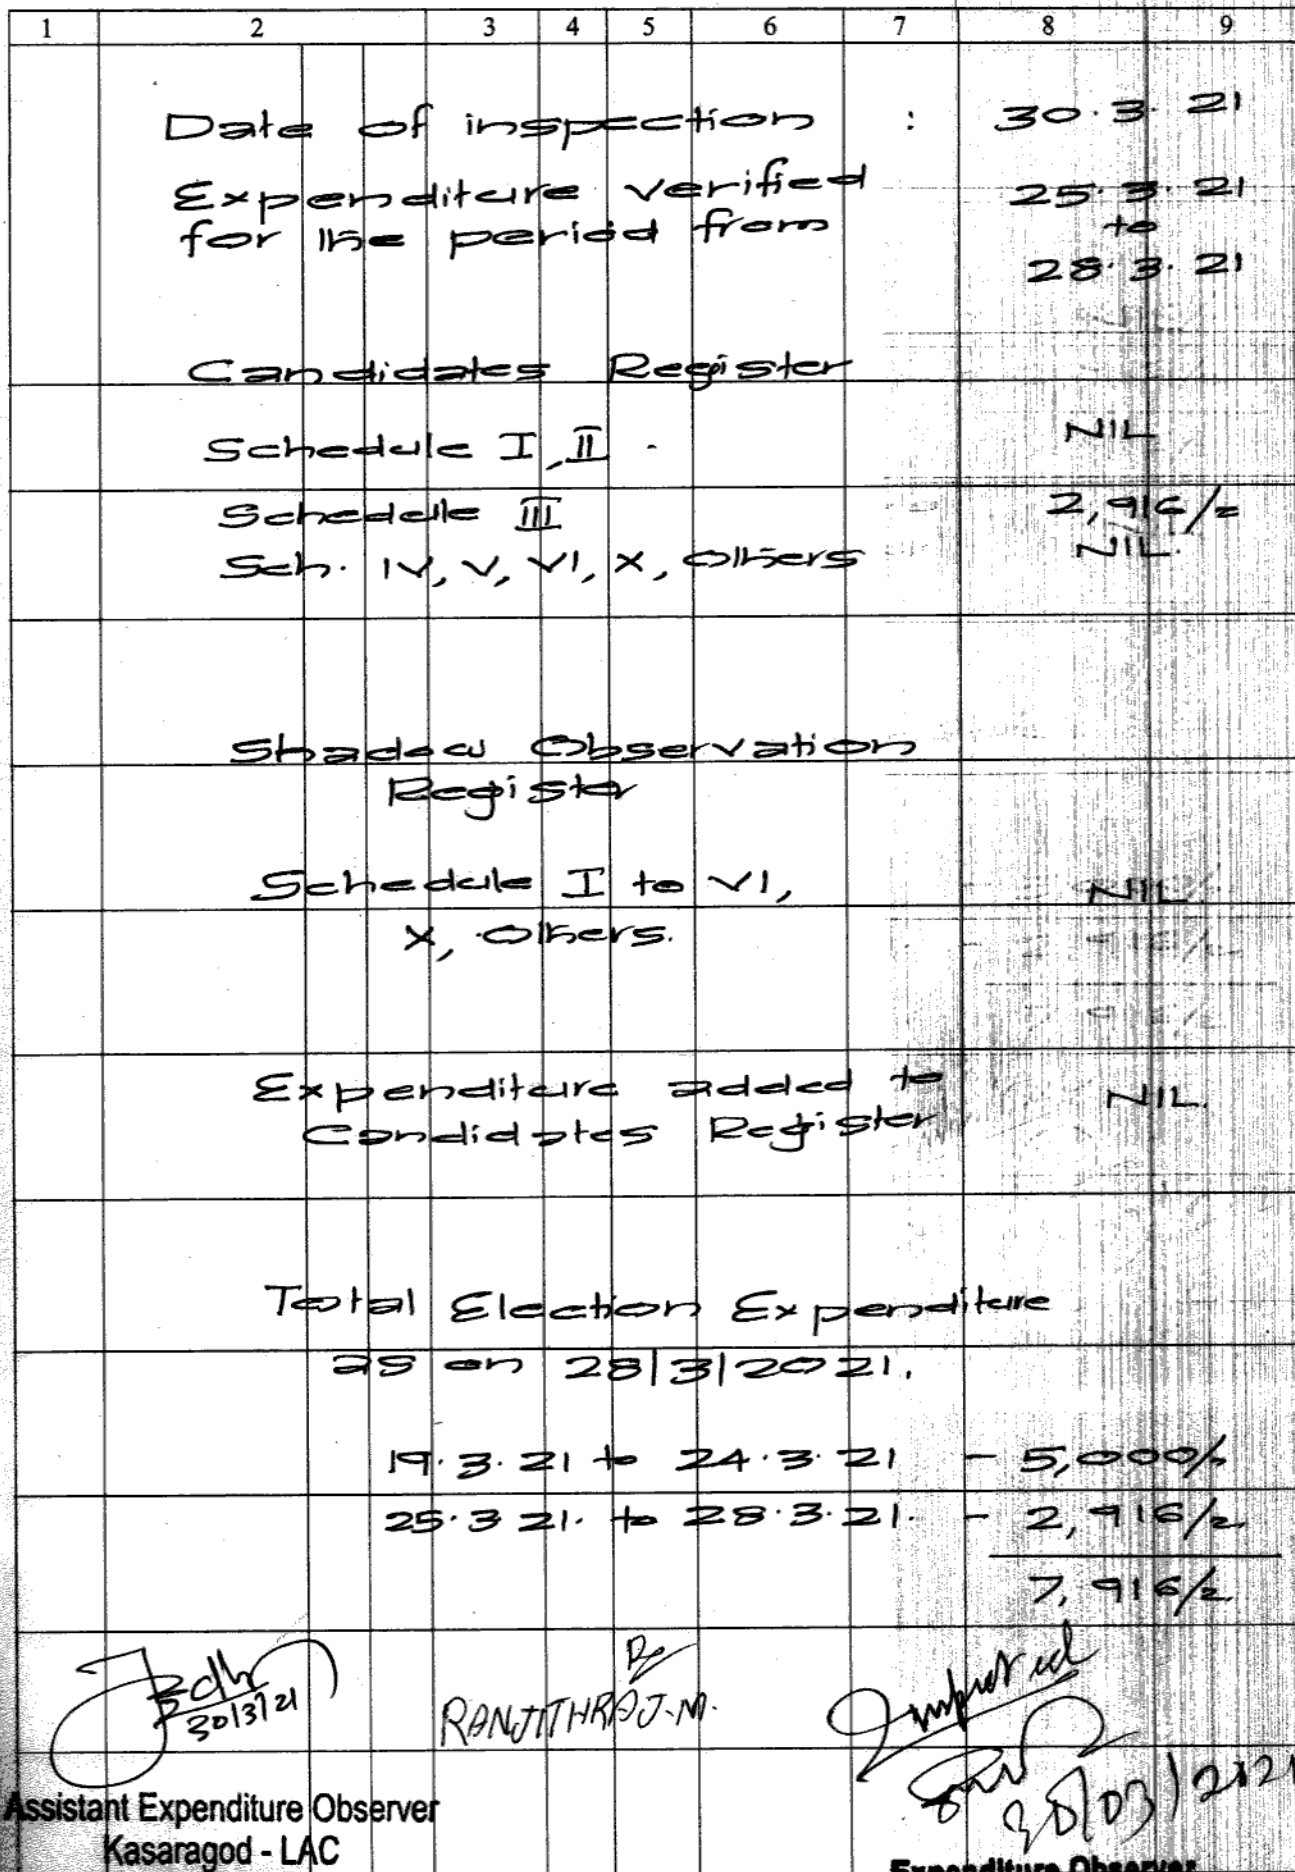 1 2 3 4 5 6 7 8 9
Date of inspection : 30.3.21
Expenditure verified 25.3.21
for the period from to
28.3.21
Candidates Register
Schedule I, II - NIL
Schedule III 2,916/=
Sch. IV, V, VI, X, Others NIL.
Shadow Observation
Register
Schedule I to VI, NIL
X, Others.
Expenditure added to NIL.
Candidates Register
Total Election Expenditure
as on 28/3/2021.
19.3.21 to 24.3.21 - 5,000/-
25.3.21. to 28.3.21. - 2,916/=
7,916/=
30/3/21
RANJITHRAJ.M.
Inspected
30/03/2021
Assistant Expenditure Observer
Kasaragod - LAC
Expenditure Observer